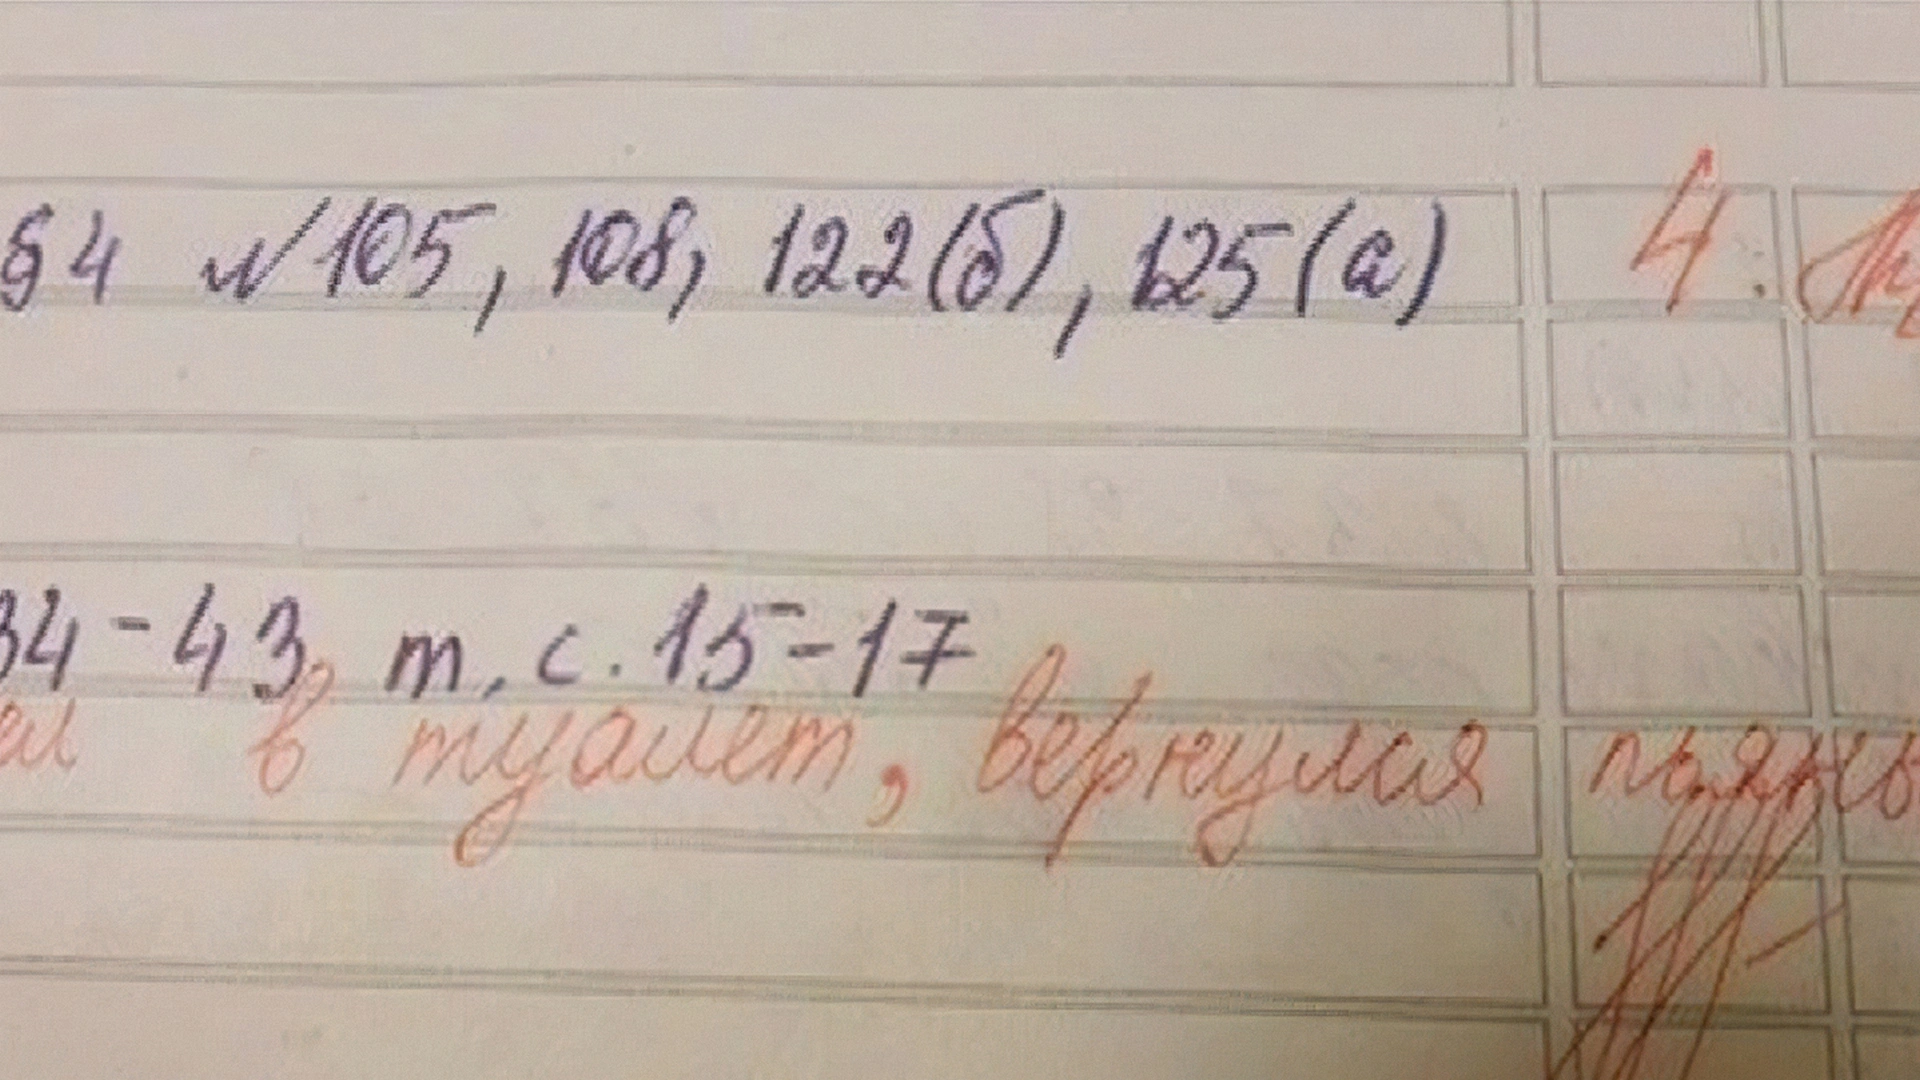 §4 №105, 108, 122(б), 125(а) 4.
34-43, т, с. 15-17
в туалет, вернулся пьяны